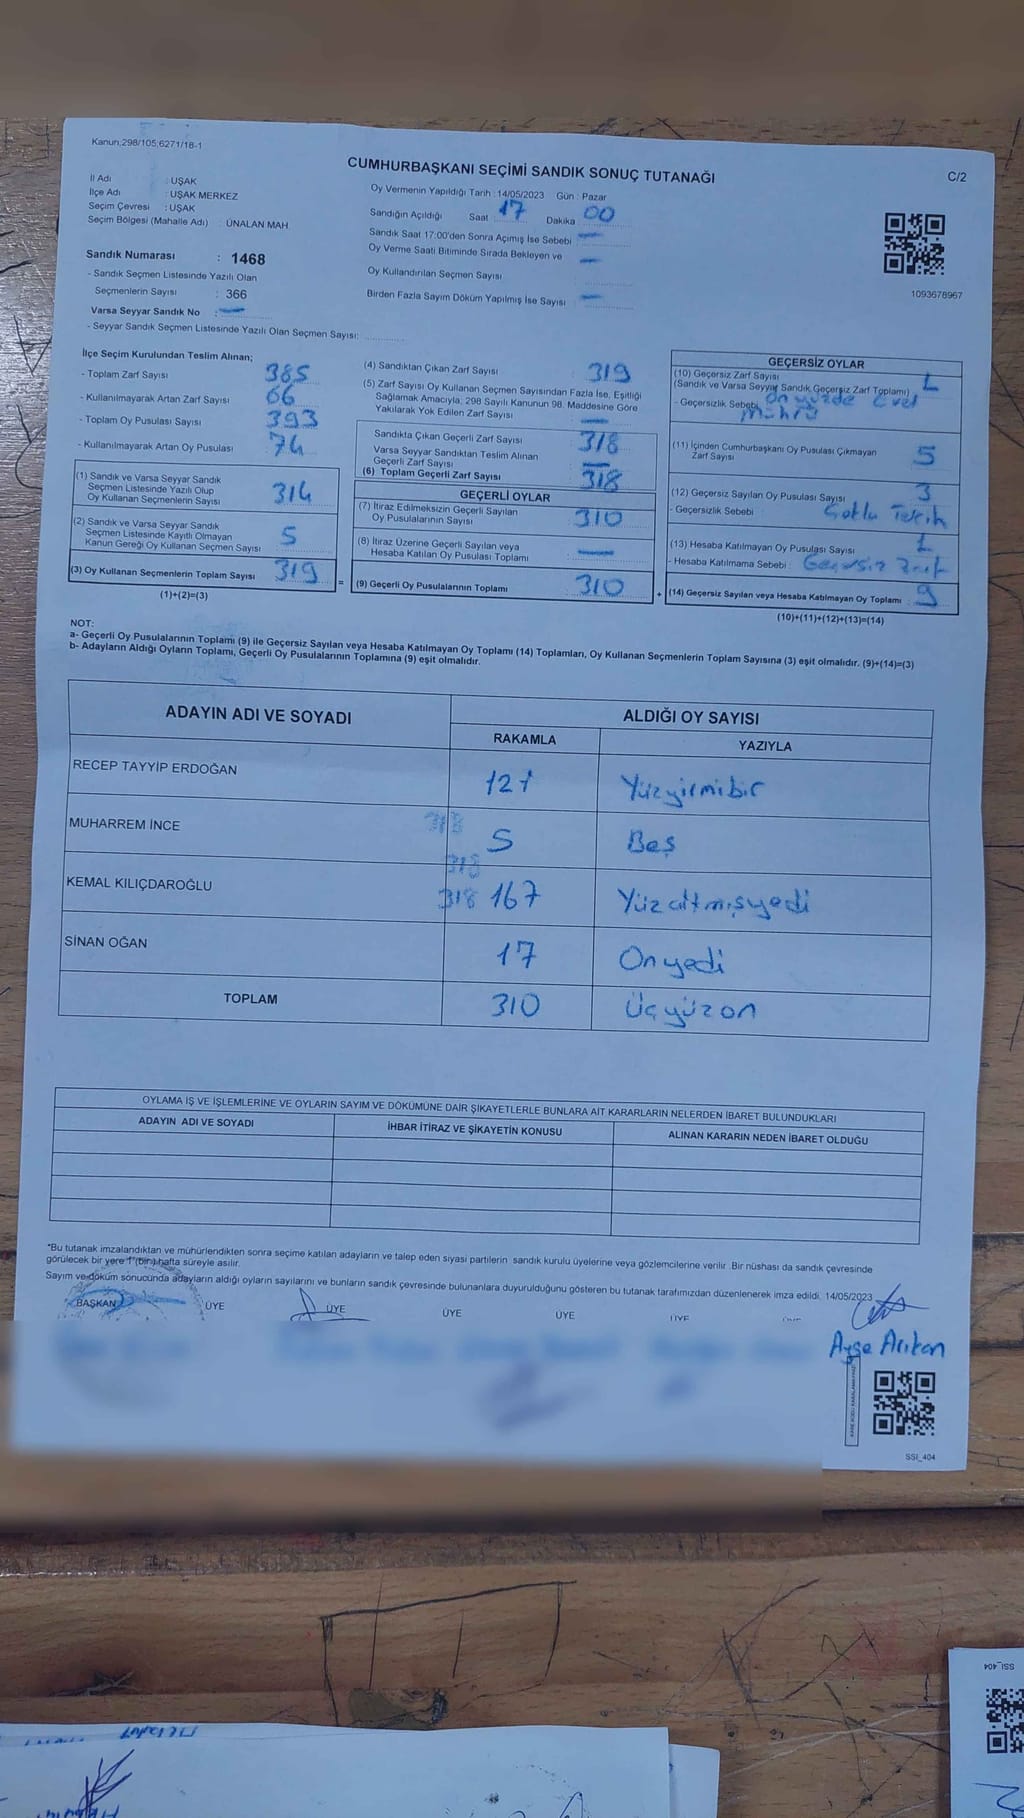 Kanun;298/105;6271/18-1
CUMHURBAŞKANI SEÇİMİ SANDIK SONUÇ TUTANAĞI
C/2
İl Adı : UŞAK
İlçe Adı : UŞAK MERKEZ
Seçim Çevresi : UŞAK
Seçim Bölgesi (Mahalle Adı) : ÜNALAN MAH
Oy Vermenin Yapıldığı Tarih : 14/05/2023 Gün : Pazar
Sandığın Açıldığı Saat 17 Dakika 00
Sandık Saat 17:00'den Sonra Açımış İse Sebebi —
Oy Verme Saati Bitiminde Sırada Bekleyen ve —
Oy Kullandırılan Seçmen Sayısı
Birden Fazla Sayım Döküm Yapılmış İse Sayısı —
1093678967
Sandık Numarası : 1468
- Sandık Seçmen Listesinde Yazılı Olan
Seçmenlerin Sayısı : 366
Varsa Seyyar Sandık No : —
- Seyyar Sandık Seçmen Listesinde Yazılı Olan Seçmen Sayısı:
İlçe Seçim Kurulundan Teslim Alınan;
- Toplam Zarf Sayısı 385
- Kullanılmayarak Artan Zarf Sayısı 66
- Toplam Oy Pusulası Sayısı 393
- Kullanılmayarak Artan Oy Pusulası 74
(1) Sandık ve Varsa Seyyar Sandık
Seçmen Listesinde Yazılı Olup
Oy Kullanan Seçmenlerin Sayısı 314
(2) Sandık ve Varsa Seyyar Sandık
Seçmen Listesinde Kayıtlı Olmayan
Kanun Gereği Oy Kullanan Seçmen Sayısı 5
(3) Oy Kullanan Seçmenlerin Toplam Sayısı 319
(1)+(2)=(3)
=
(4) Sandıktan Çıkan Zarf Sayısı 319
(5) Zarf Sayısı Oy Kullanan Seçmen Sayısından Fazla İse, Eşitliği
Sağlamak Amacıyla, 298 Sayılı Kanunun 98. Maddesine Göre
Yakılarak Yok Edilen Zarf Sayısı —
Sandıkta Çıkan Geçerli Zarf Sayısı 318
Varsa Seyyar Sandıktan Teslim Alınan
Geçerli Zarf Sayısı —
(6) Toplam Geçerli Zarf Sayısı 318
GEÇERLİ OYLAR
(7) İtiraz Edilmeksizin Geçerli Sayılan
Oy Pusulalarının Sayısı 310
(8) İtiraz Üzerine Geçerli Sayılan veya
Hesaba Katılan Oy Pusulası Toplamı —
(9) Geçerli Oy Pusulalarının Toplamı 310
+
GEÇERSİZ OYLAR
(10) Geçersiz Zarf Sayısı
(Sandık ve Varsa Seyyar Sandık Geçersiz Zarf Toplamı) 1
- Geçersizlik Sebebi ön yüzde Evet
mührü
(11) İçinden Cumhurbaşkanı Oy Pusulası Çıkmayan
Zarf Sayısı 5
(12) Geçersiz Sayılan Oy Pusulası Sayısı 3
- Geçersizlik Sebebi : Çoklu Tercih
(13) Hesaba Katılmayan Oy Pusulası Sayısı 1
- Hesaba Katılmama Sebebi : Geçersiz Zarf
(14) Geçersiz Sayılan veya Hesaba Katılmayan Oy Toplamı : 9
(10)+(11)+(12)+(13)=(14)
NOT:
a- Geçerli Oy Pusulalarının Toplamı (9) ile Geçersiz Sayılan veya Hesaba Katılmayan Oy Toplamı (14) Toplamları, Oy Kullanan Seçmenlerin Toplam Sayısına (3) eşit olmalıdır. (9)+(14)=(3)
b- Adayların Aldığı Oyların Toplamı, Geçerli Oy Pusulalarının Toplamına (9) eşit olmalıdır.
ADAYIN ADI VE SOYADI
ALDIĞI OY SAYISI
RAKAMLA YAZIYLA
RECEP TAYYİP ERDOĞAN 121 Yüzyirmibir
MUHARREM İNCE 318 5 Beş
318
KEMAL KILIÇDAROĞLU 318 167 Yüzaltmışyedi
SİNAN OĞAN 17 Onyedi
TOPLAM 310 Üçyüzon
OYLAMA İŞ VE İŞLEMLERİNE VE OYLARIN SAYIM VE DÖKÜMÜNE DAİR ŞİKAYETLERLE BUNLARA AİT KARARLARIN NELERDEN İBARET BULUNDUKLARI
ADAYIN ADI VE SOYADI İHBAR İTİRAZ VE ŞİKAYETİN KONUSU ALINAN KARARIN NEDEN İBARET OLDUĞU
*Bu tutanak imzalandıktan ve mühürlendikten sonra seçime katılan adayların ve talep eden siyasi partilerin sandık kurulu üyelerine veya gözlemcilerine verilir. Bir nüshası da sandık çevresinde
görülecek bir yere 1 (bir) hafta süreyle asılır.
Sayım ve döküm sonucunda adayların aldığı oyların sayılarını ve bunların sandık çevresinde bulunanlara duyurulduğunu gösteren bu tutanak tarafımızdan düzenlenerek imza edildi. 14/05/2023
BAŞKAN ÜYE ÜYE ÜYE ÜYE ÜYE
Ayşe Arıkan
SSI_404
SSI_404